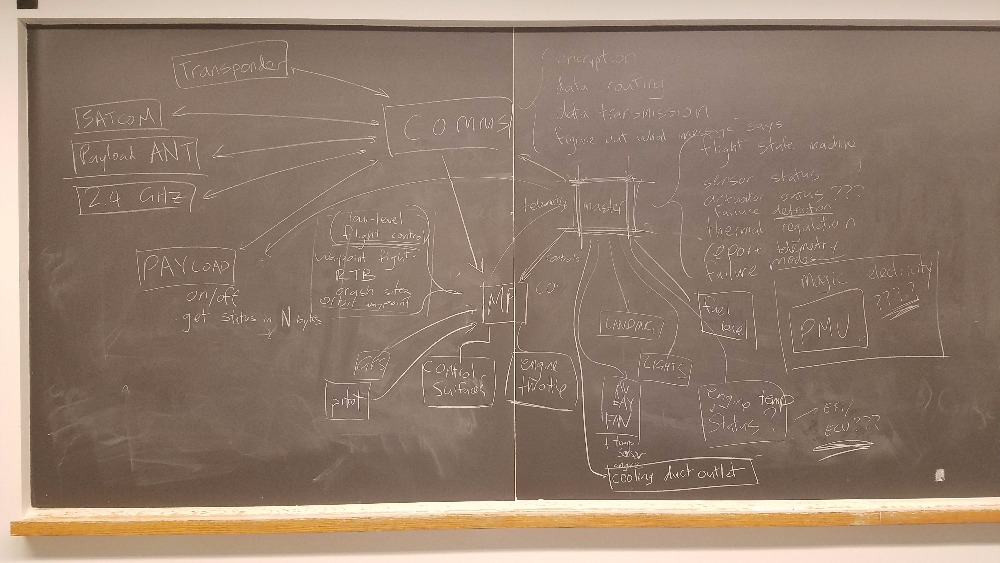 Transponder
SATCOM
Payload ANT
2.4 GHz
COMMS
encryption
data routing
data transmission
figure out what message says
flight state machine
sensor status
actuator status ???
failure detection
thermal regulation
telemetry
modes
failure
telemetry
master
controls
low-level
flight control
waypoint flight
RTB
crash site
orbit waypoint
PAYLOAD
on/off
get status in N bytes
GPS
pitot
control
surfaces
engine
throttle
LANDING
LIGHTS
fuel
level
magic electricity
PMU
????
AV
BAY
FAN
engine temp
status ?
EFI/
ECU???
cooling duct outlet